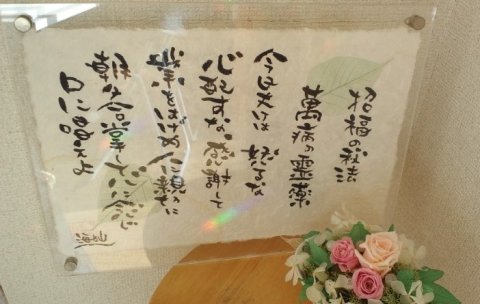 招福の秘法
萬病の霊薬
今日丈けは 怒るな
心配すな 感謝して
業をはげめ 人に親切に
朝夕合掌して 心に念じ
口に唱えよ